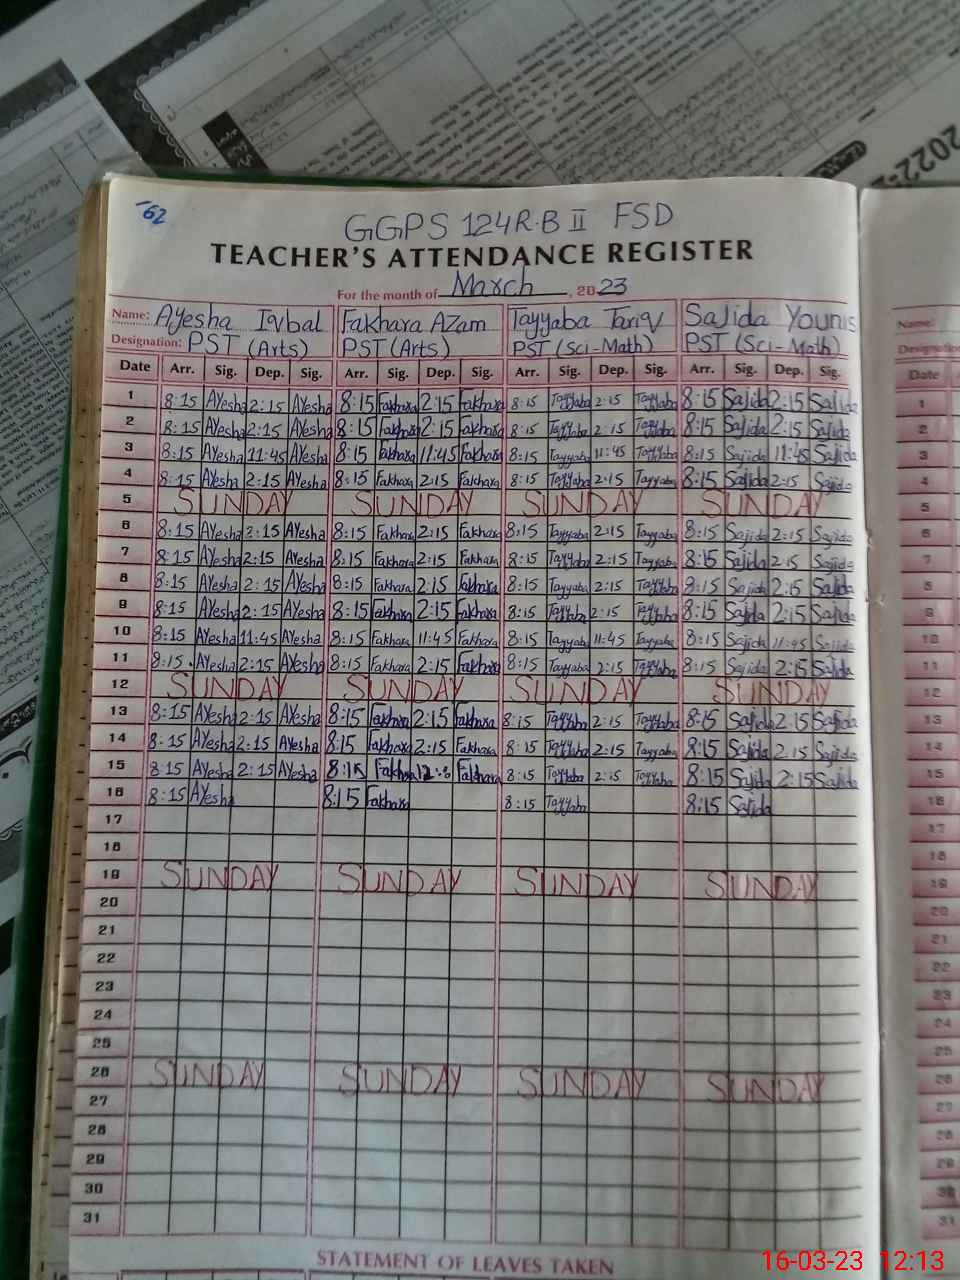 -62
GGPS 124R.B II FSD
TEACHER'S ATTENDANCE REGISTER
For the month of March, 2023
Name: Ayesha Iqbal Fakhara Azam Tayyaba Tariq Sajida Younis
Designation: PST (Arts) PST (Arts) PST (Sci-Math) PST (Sci-Math)
Date Arr. Sig. Dep. Sig. Arr. Sig. Dep. Sig. Arr. Sig. Dep. Sig. Arr. Sig. Dep. Sig.
1 8:15 Ayesha 2:15 Ayesha 8:15 Fakhara 2:15 Fakhara 8:15 Tayyaba 2:15 Tayyaba 8:15 Sajida 2:15 Sajida
2 8:15 Ayesha 2:15 Ayesha 8:15 Fakhara 2:15 Fakhara 8:15 Tayyaba 2:15 Tayyaba 8:15 Sajida 2:15 Sajida
3 8:15 Ayesha 11:45 Ayesha 8:15 Fakhara 11:45 Fakhara 8:15 Tayyaba 11:45 Tayyaba 8:15 Sajida 11:45 Sajida
4 8:15 Ayesha 2:15 Ayesha 8:15 Fakhara 2:15 Fakhara 8:15 Tayyaba 2:15 Tayyaba 8:15 Sajida 2:15 Sajida
5 SUNDAY SUNDAY SUNDAY SUNDAY
6 8:15 Ayesha 2:15 Ayesha 8:15 Fakhara 2:15 Fakhara 8:15 Tayyaba 2:15 Tayyaba 8:15 Sajida 2:15 Sajida
7 8:15 Ayesha 2:15 Ayesha 8:15 Fakhara 2:15 Fakhara 8:15 Tayyaba 2:15 Tayyaba 8:15 Sajida 2:15 Sajida
8 8:15 Ayesha 2:15 Ayesha 8:15 Fakhara 2:15 Fakhara 8:15 Tayyaba 2:15 Tayyaba 8:15 Sajida 2:15 Sajida
9 8:15 Ayesha 2:15 Ayesha 8:15 Fakhara 2:15 Fakhara 8:15 Tayyaba 2:15 Tayyaba 8:15 Sajida 2:15 Sajida
10 8:15 Ayesha 11:45 Ayesha 8:15 Fakhara 11:45 Fakhara 8:15 Tayyaba 11:45 Tayyaba 8:15 Sajida 11:45 Sajida
11 8:15 Ayesha 2:15 Ayesha 8:15 Fakhara 2:15 Fakhara 8:15 Tayyaba 2:15 Tayyaba 8:15 Sajida 2:15 Sajida
12 SUNDAY SUNDAY SUNDAY SUNDAY
13 8:15 Ayesha 2:15 Ayesha 8:15 Fakhara 2:15 Fakhara 8:15 Tayyaba 2:15 Tayyaba 8:15 Sajida 2:15 Sajida
14 8:15 Ayesha 2:15 Ayesha 8:15 Fakhara 2:15 Fakhara 8:15 Tayyaba 2:15 Tayyaba 8:15 Sajida 2:15 Sajida
15 8:15 Ayesha 2:15 Ayesha 8:15 Fakhara Fakhara 8:15 Tayyaba 2:15 Tayyaba 8:15 Sajida 2:15 Sajida
16 8:15 Ayesha 8:15 Fakhara 8:15 Tayyaba 8:15 Sajida
17
18
19 SUNDAY SUNDAY SUNDAY SUNDAY
20
21
22
23
24
25
26 SUNDAY SUNDAY SUNDAY SUNDAY
27
28
29
30
31
STATEMENT OF LEAVES TAKEN
16-03-23 12:13